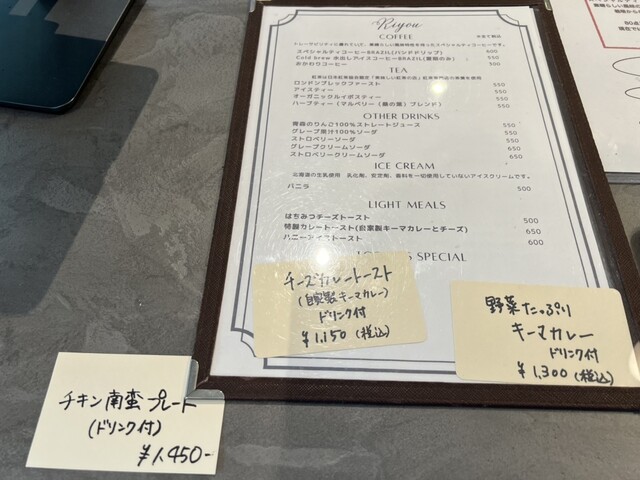 Riyou
COFFEE
スペシャルティコーヒーBRAZIL(ハンドドリップ) 600
Cold brew 水出しアイスコーヒーBRAZIL(夏期のみ) 550
おかわりコーヒー 500
TEA
ロンドンブレックファースト 550
アイスティー 550
オーガニックルイボスティー 550
ハーブティー(マルベリー(桑の葉)ブレンド) 550
OTHER DRINKS
青森のりんご100%ストレートジュース 550
グレープ果汁100%ソーダ 550
ストロベリーソーダ 550
グレープクリームソーダ 650
ストロベリークリームソーダ 650
ICE CREAM
北海道の生乳使用 乳化剤、安定剤、香料を一切使用していないアイスクリームです。
バニラ 500
LIGHT MEALS
はちみつチーズトースト 500
特製カレートースト(自家製キーマカレーとチーズ) 650
ハニーアイストースト 600
SPECIAL
チーズカレートースト
(自家製キーマカレー)
ドリンク付
¥1,150(税込)
野菜たっぷり
キーマカレー
ドリンク付
¥1,300(税込)
チキン南蛮プレート
(ドリンク付)
¥1,450-